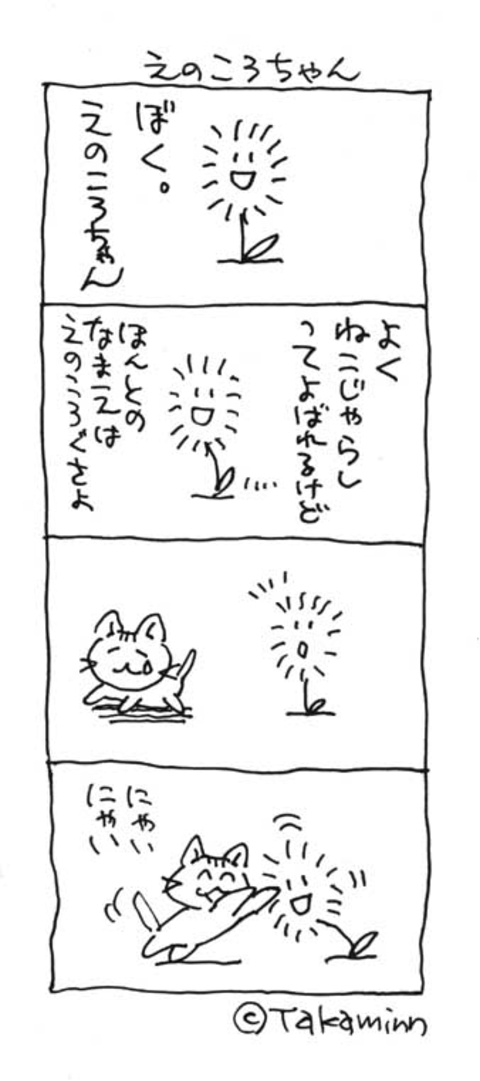 えのころちゃん
ぼく。
えのころちゃん
よく
ねこじゃらし
ってよばれるけど
ほんとの
なまえは
えのころぐさよ
にゃい
にゃい
©Takaminn